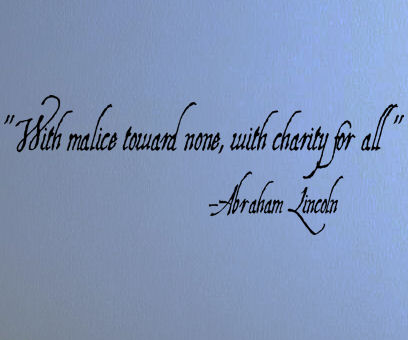 "With malice toward none, with charity for all"
-Abraham Lincoln